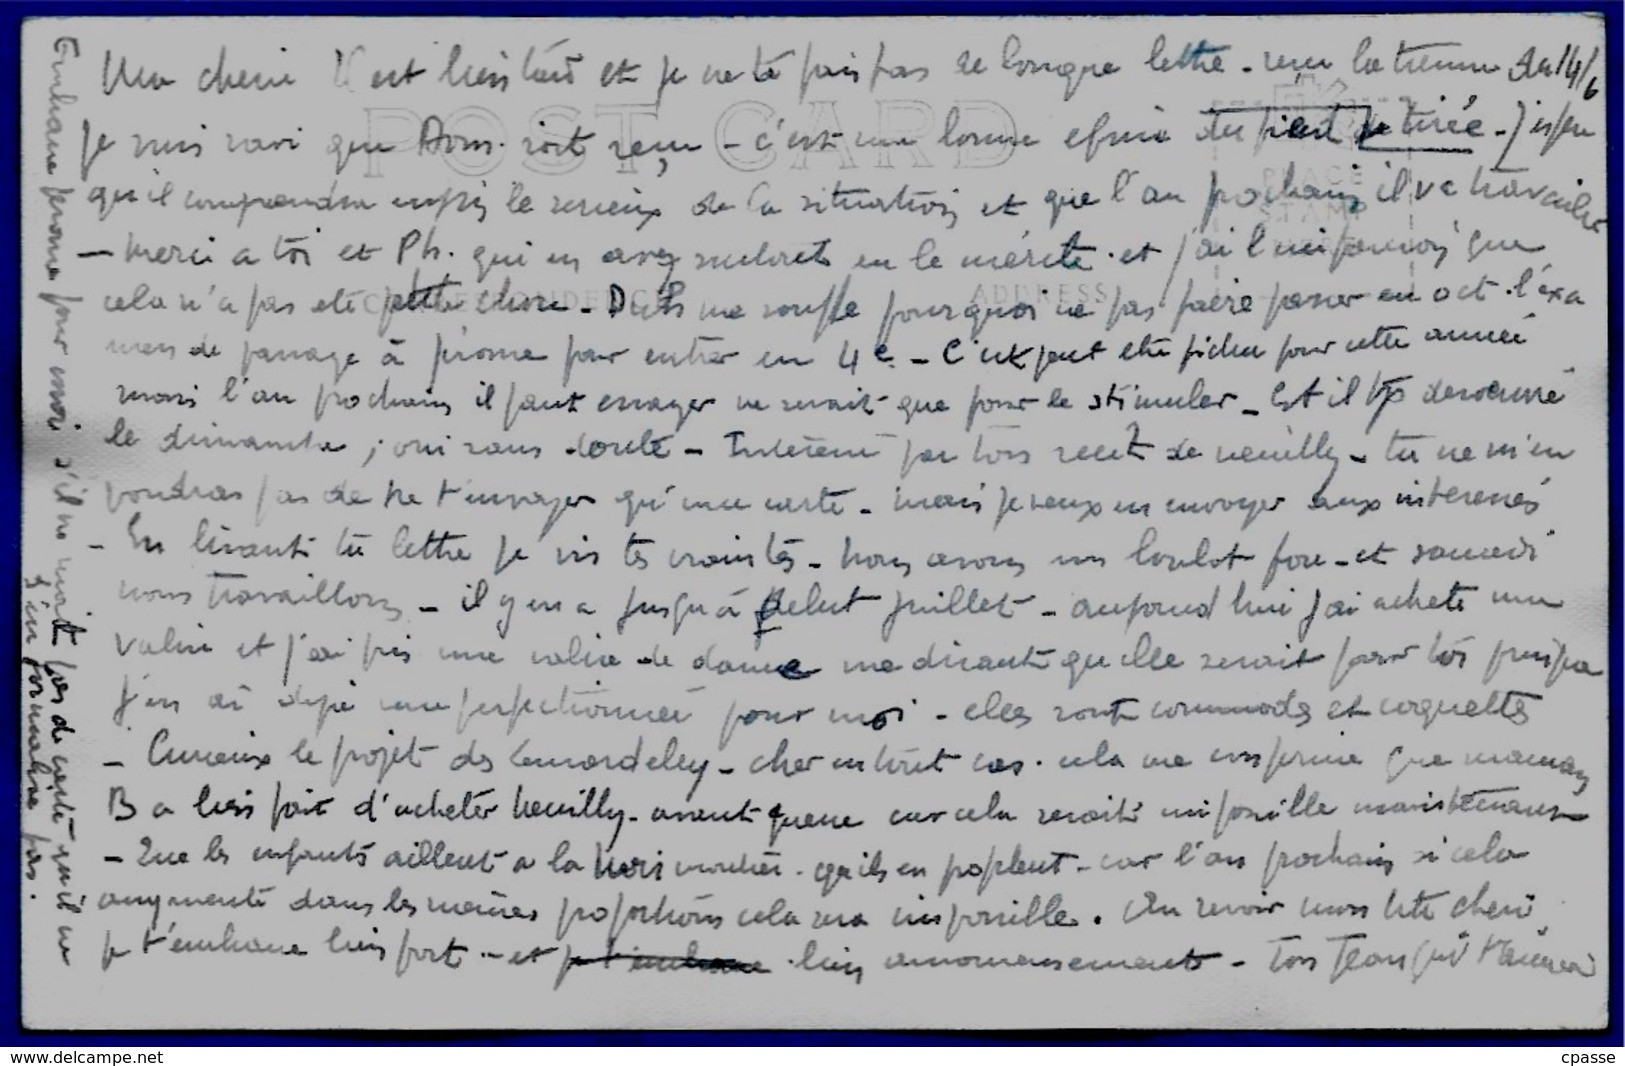 Ma chérie Il est très tard et je ne te fais pas de longue lettre - reçu la tienne du 14/6
je suis ravi que Dom. soit reçu - c'est une bonne épine du pied de tirée - J'espère
qu'il comprendra enfin le sérieux de la situation et que l'an prochain il va travailler
- Merci a toi et Ph. qui en avez surtout eu le mérite et j'ai l'impression que
cela n'a pas été petite chose - Dults me souffle pourquoi ne pas faire passer en oct. l'exa
men de passage à pour entrer en 4e - C'est peut etre fichu pour cette année
mais l'an prochain il faut essayer ne serait-que pour le stimuler - Est il tp desoeuvré
le dimanche ; oui sans doute - Intéressé par ton récit de neuilly - tu ne m'en
voudras pas de ne t'envoyer qu'une carte - mais je veux en envoyer aux intéressés
- En lisant ta lettre je vis tes craintes - Nous avons un boulot fou - et samedi
nous travaillons - il y en a jusqu'à début juillet - aujourd'hui j'ai acheté une
valise et j'ai pris une valise de dame me disant qu'elle serait pour toi puisque
j'en ai déjà une perfectionnée pour moi - elles sont commodes et coquettes
- Curieux le projet des Lemordeley - cher en tout cas. cela me confirme que maman
B a bien fait d'acheter Neuilly - avant guerre car cela serait impossible maintenant -
- Que les enfants aillent a la mer - qu'ils en profitent - car l'an prochain si cela
augmente dans les mêmes proportions cela sera impossible. Au revoir mon tite chérie
je t'embrasse bien fort - et je t'embrasse bien amoureusement - Ton Jean qui t'aime
Embrasse pour moi s'il ne m'écrit pas de carte qu'il ne
s'en formalise pas.
POST CARD
PLACE
STAMP
HERE
CORRESPONDENCE
ADDRESS
www.delcampe.net
cpasse